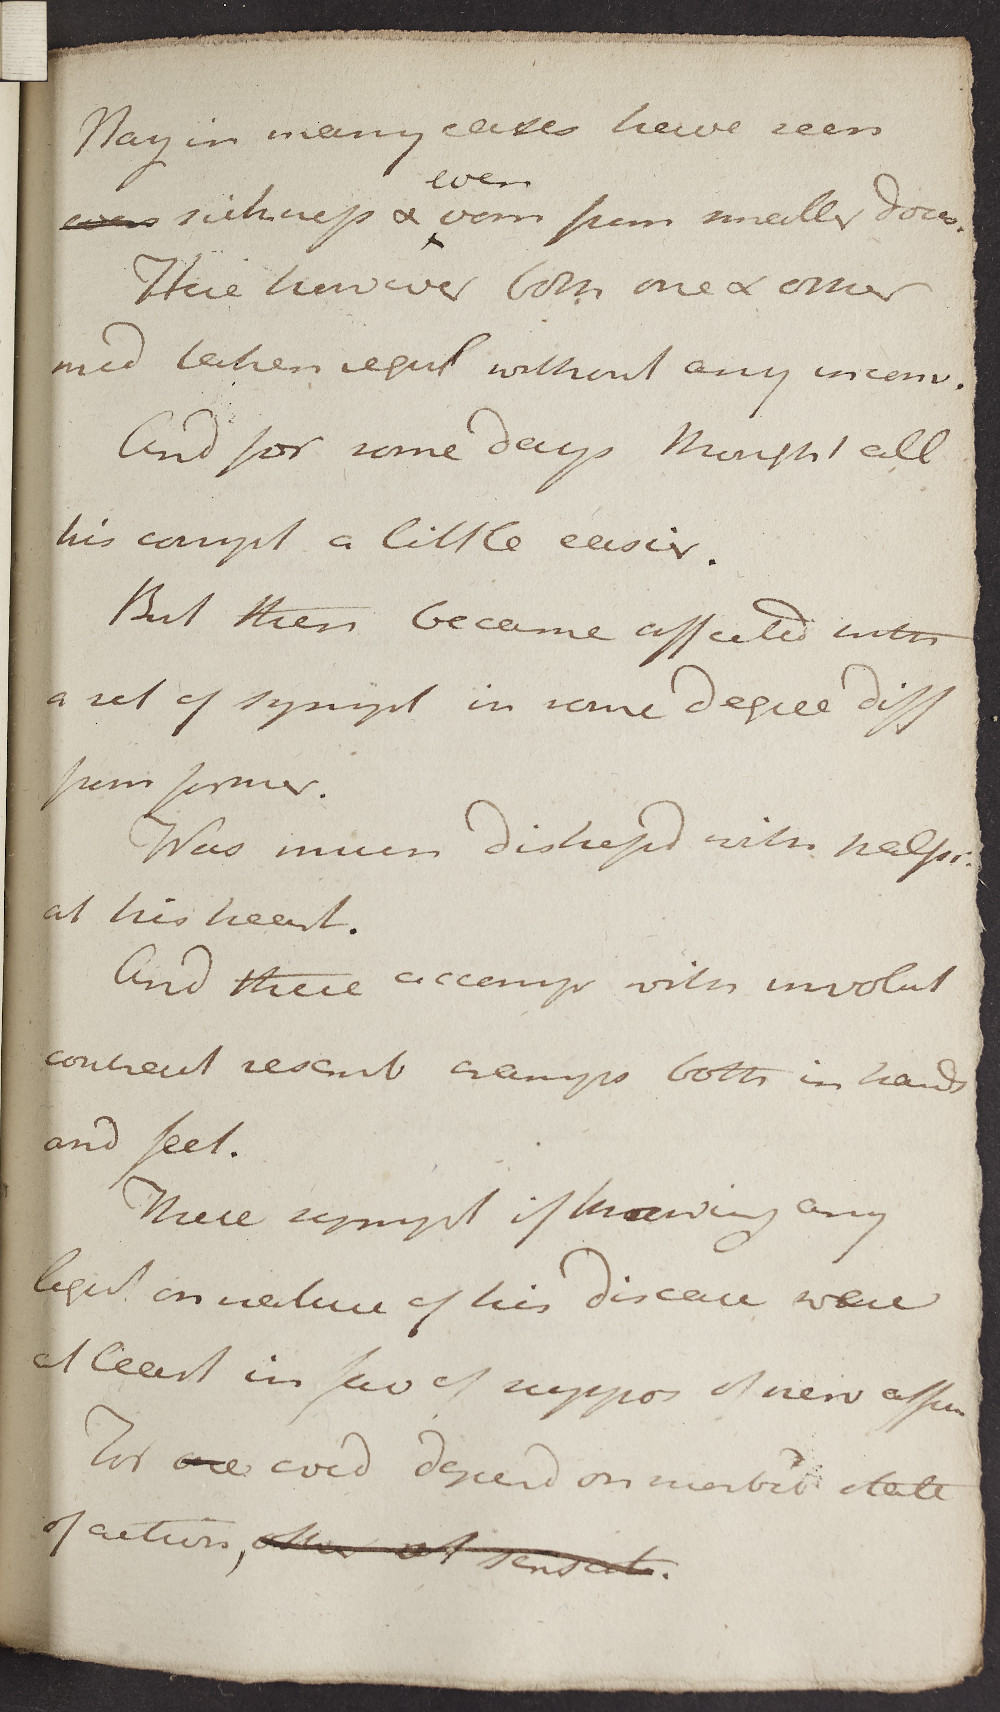 Nay in many cases have seen
even
even sickness & vom from smaller doses.
Here however both one & other
med taken regul without any inconv.
And for some days thought all
his compt a little easier.
But then became affected with
a set of sympt in some degree diff
from former.
Was much distress'd with palpi.
at his heart.
And these accomp with involut
contract resemb cramps both in hands
and feet.
These sympt if throwing any
light on nature of his disease were
at least in fav of suppos of nerv affec
For one coud depend on morbid state
of action, other at sensat.